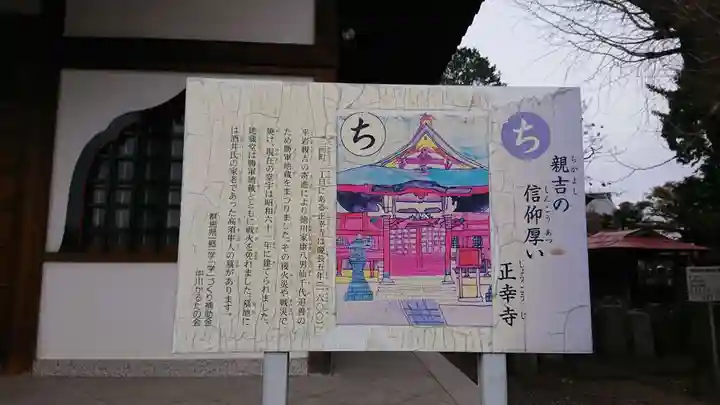 ち
親吉の
ちかよし
信仰厚い
しんこう あつ
正幸寺
じょうこうじ
ち
西町一丁目にある正幸寺は慶長五年(一六〇〇)
平岩親吉の寄進により徳川家康八男仙千代追善の
ため勝軍地蔵をまつりました。その後火災や戦災で
焼け、現在の堂宇は昭和六十二年に建てられました。
地蔵堂は勝軍地蔵とともに戦火を免れました。墓地に
は酒井氏の家老であった高須隼人の墓があります。
群馬県一郷一学「学」づくり補助金
中川かるたの会